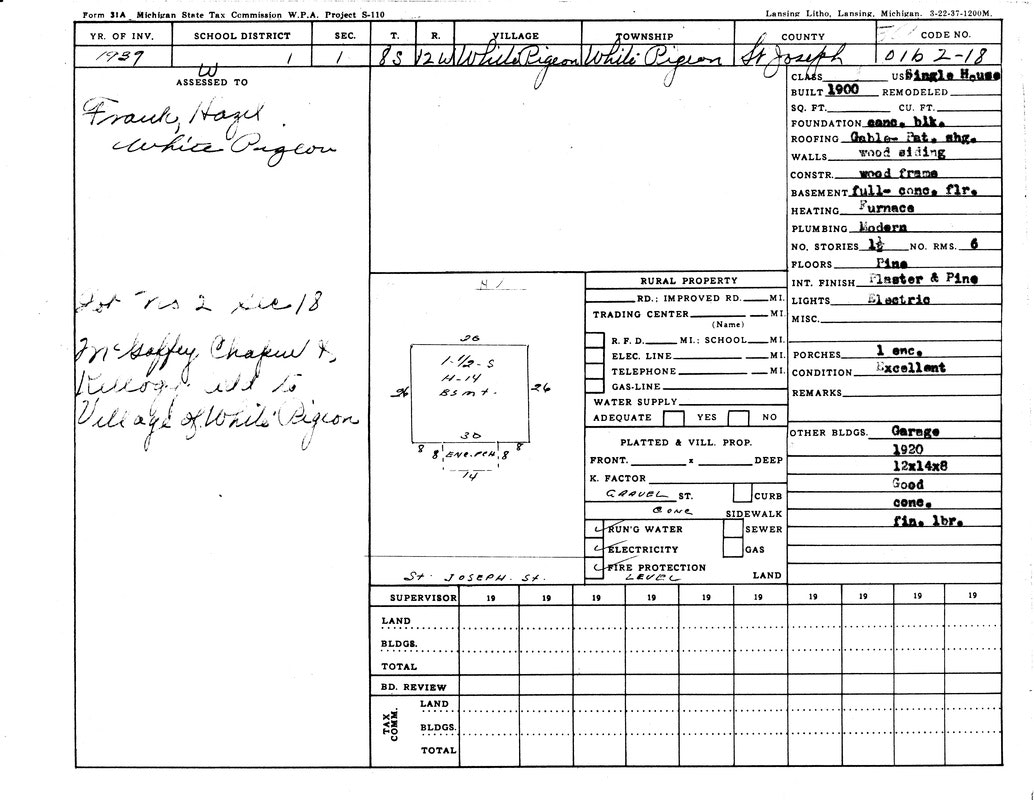 Form 31A Michigan State Tax Commission W.P.A. Project S-110
Lansing Litho, Lansing, Michigan. 3-22-37-1200M.
YR. OF INV. SCHOOL DISTRICT SEC. T. R. VILLAGE TOWNSHIP COUNTY CODE NO.
1937 1 1 8S 12W White Pigeon White Pigeon St Joseph 016 2-18
W
ASSESSED TO
Frank, Hazel
White Pigeon
Lot No 2 Sec 18
McGaffey, Chapin &
Kellogg add to
Village of White Pigeon
N
26
1-1/2-S
H-14
Bsmt.
26 26
30
8 8 ENC. PCH 8 8
14
St. JOSEPH. St.
RURAL PROPERTY
RD.; IMPROVED RD. MI.
TRADING CENTER MI.
(Name)
R. F. D. MI.; SCHOOL MI.
ELEC. LINE MI.
TELEPHONE MI.
GAS-LINE
WATER SUPPLY
ADEQUATE YES NO
PLATTED & VILL. PROP.
FRONT. x DEEP
K. FACTOR
GRAVEL ST. CURB
CONC SIDEWALK
RUN'G WATER SEWER
ELECTRICITY GAS
FIRE PROTECTION
LEVEL LAND
CLASS US Single House
BUILT 1900 REMODELED
SQ. FT. CU. FT.
FOUNDATION conc. blk.
ROOFING Gable- Pat. shg.
WALLS wood siding
CONSTR. wood frame
BASEMENT full- conc. flr.
HEATING Furnace
PLUMBING Modern
NO. STORIES 1½ NO. RMS. 6
FLOORS Pine
INT. FINISH Plaster & Pine
LIGHTS Electric
MISC.
PORCHES 1 enc.
CONDITION Excellent
REMARKS
OTHER BLDGS. Garage
1920
12x14x8
Good
conc.
fin. lbr.
SUPERVISOR 19 19 19 19 19 19 19 19 19
LAND
BLDGS.
TOTAL
BD. REVIEW
TAX COMM.
LAND
BLDGS.
TOTAL